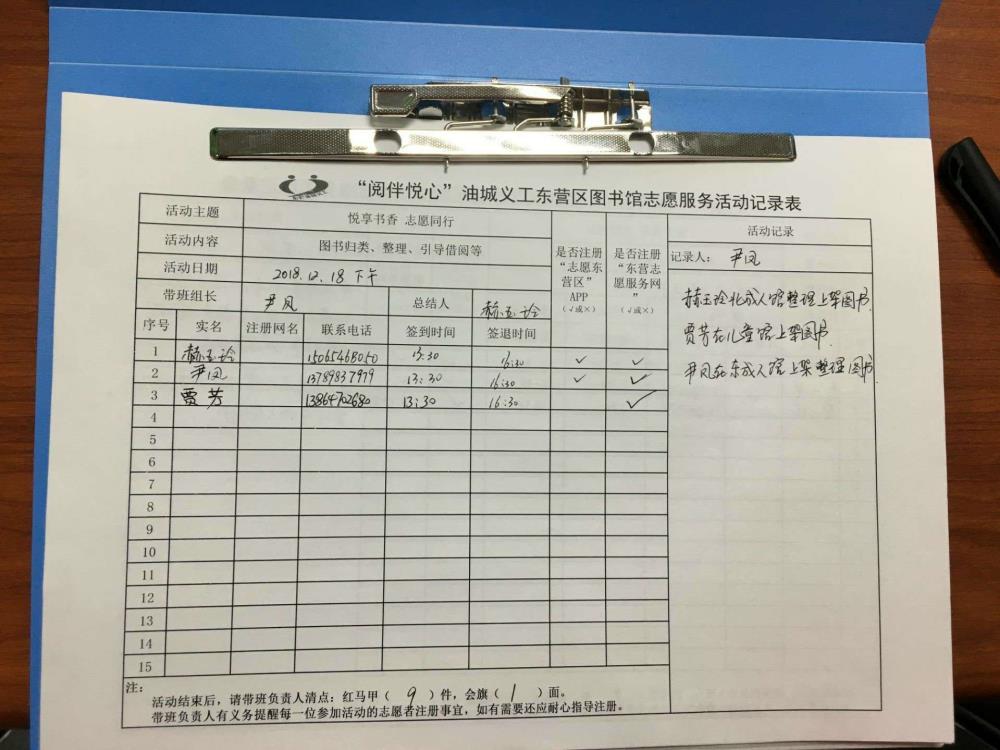 “阅伴悦心”油城义工东营区图书馆志愿服务活动记录表
活动主题 悦享书香 志愿同行
活动内容 图书归类、整理、引导借阅等
活动日期 2018.12.18 下午
带班组长 尹凤 总结人 郝玉玲
是否注册“志愿东营区”APP（√或×）
是否注册“东营志愿服务网”（√或×）
活动记录
记录人： 尹凤
郝玉玲北成人馆整理上架图书.
贾芳在儿童馆上架图书.
尹凤在东成人馆上架整理图书.
序号 实名 注册网名 联系电话 签到时间 签退时间
1 郝玉玲 15065468050 13:30 16:30 ✓ ✓
2 尹凤 13789837979 13:30 16:30 ✓ ✓
3 贾芳 13864702680 13:30 16:30 ✓
4
5
6
7
8
9
10
11
12
13
14
15
注：
活动结束后，请带班负责人清点：红马甲（ 9 ）件，会旗（ 1 ）面。
带班负责人有义务提醒每一位参加活动的志愿者注册事宜，如有需要还应耐心指导注册。